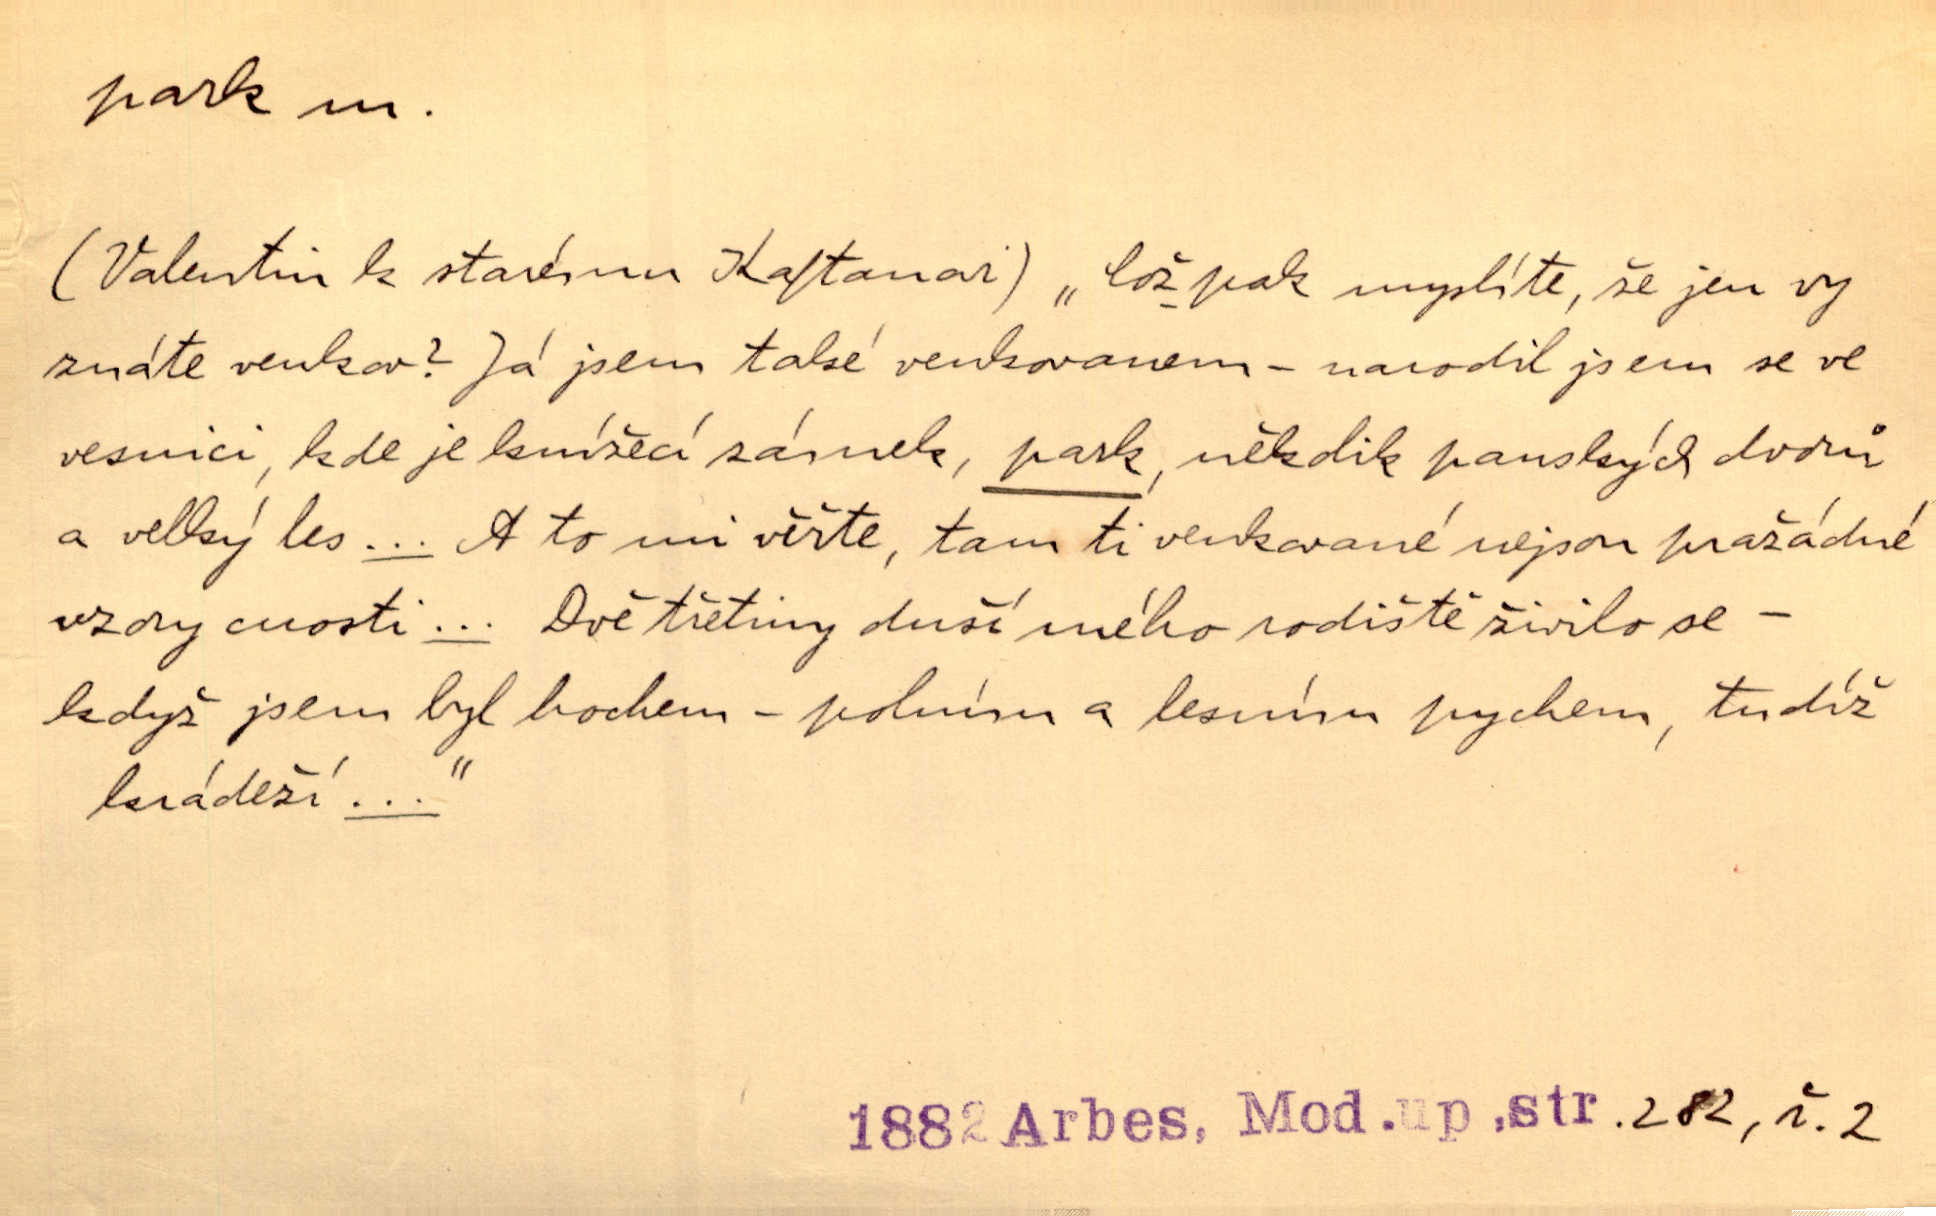 park m.
(Valentin k starému Kaftanovi) „Což pak myslíte, že jen vy
znáte venkov? Já jsem také venkovanem – narodil jsem se ve
vesnici, kde je knížecí zámek, park, několik panských dvorů
a velký les ... A to mi věřte, tam ti venkované nejsou pražádné
vzory cnosti ... Dvě třetiny duší mého rodiště živilo se –
když jsem byl hochem – polním a lesním pychem, tudíž
krádeží ..."
1882 Arbes, Mod.up,str.282, ř. 2